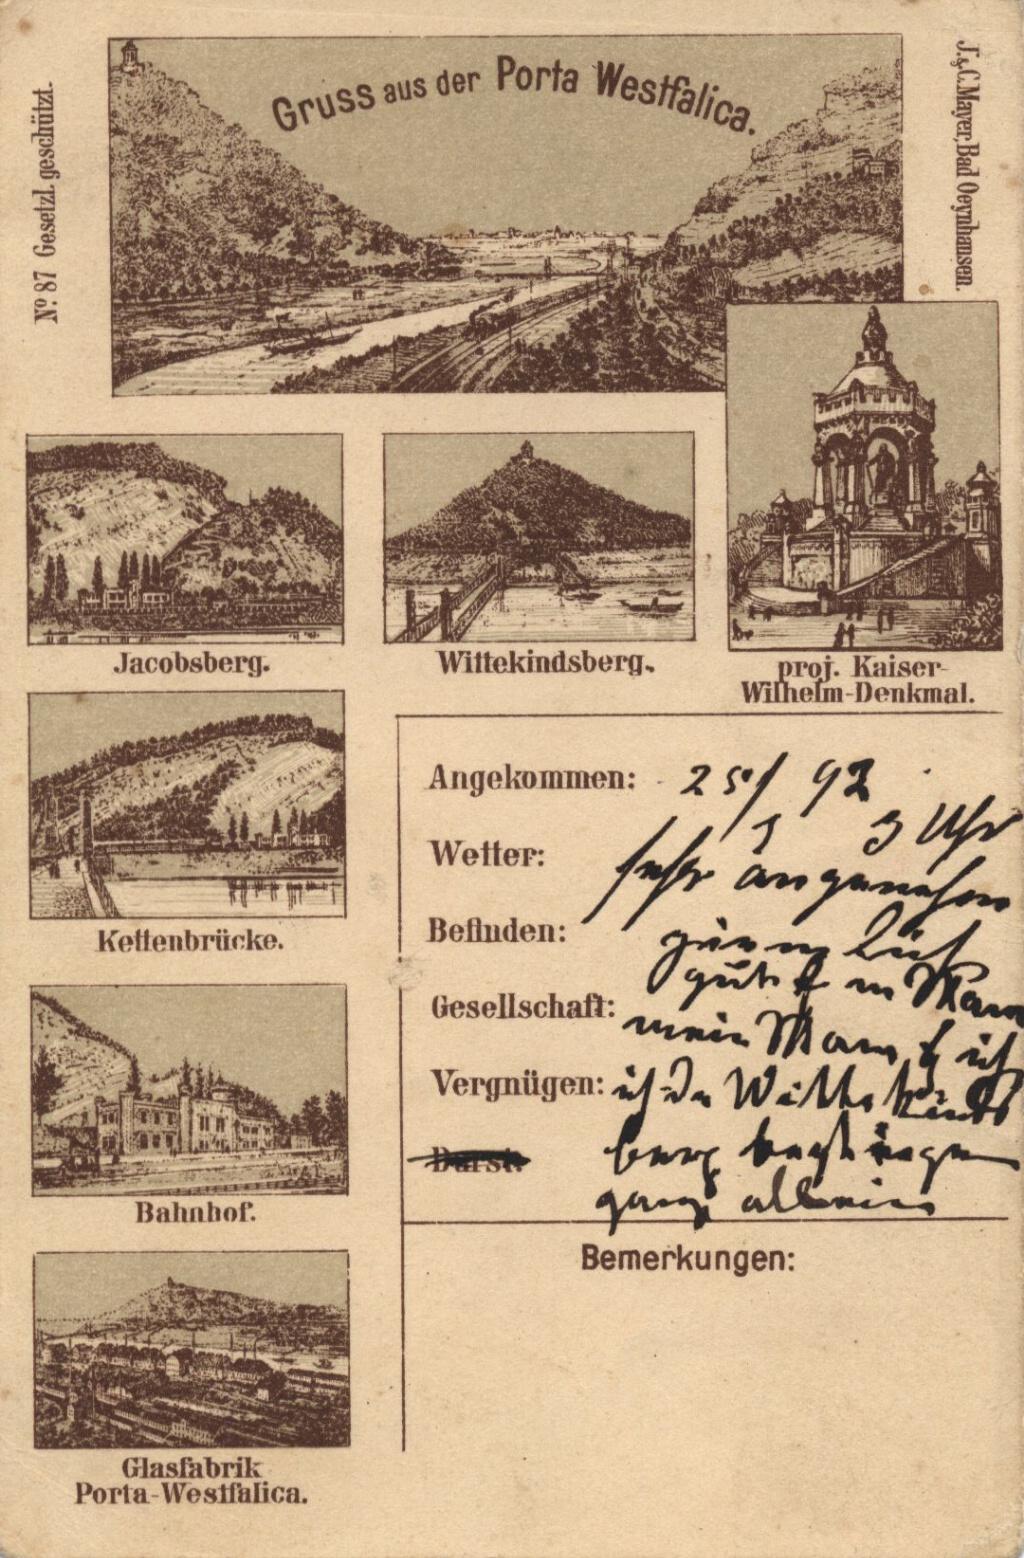 Gruss aus der Porta Westfalica.
No. 87 Gesetzl. geschützt.
J. & C. Mayer, Bad Oeynhausen.
Jacobsberg.
Wittekindsberg.
proj. Kaiser-
Wilhelm-Denkmal.
Kettenbrücke.
Bahnhof.
Glasfabrik
Porta-Westfalica.
Angekommen: 25/ 92
3 Uhr
Wetter: sehr angenehm
Befinden:
gut
Gesellschaft: mein Mann & ich
Vergnügen: Wittekinds
berg
Durst:
ganz allein
Bemerkungen: